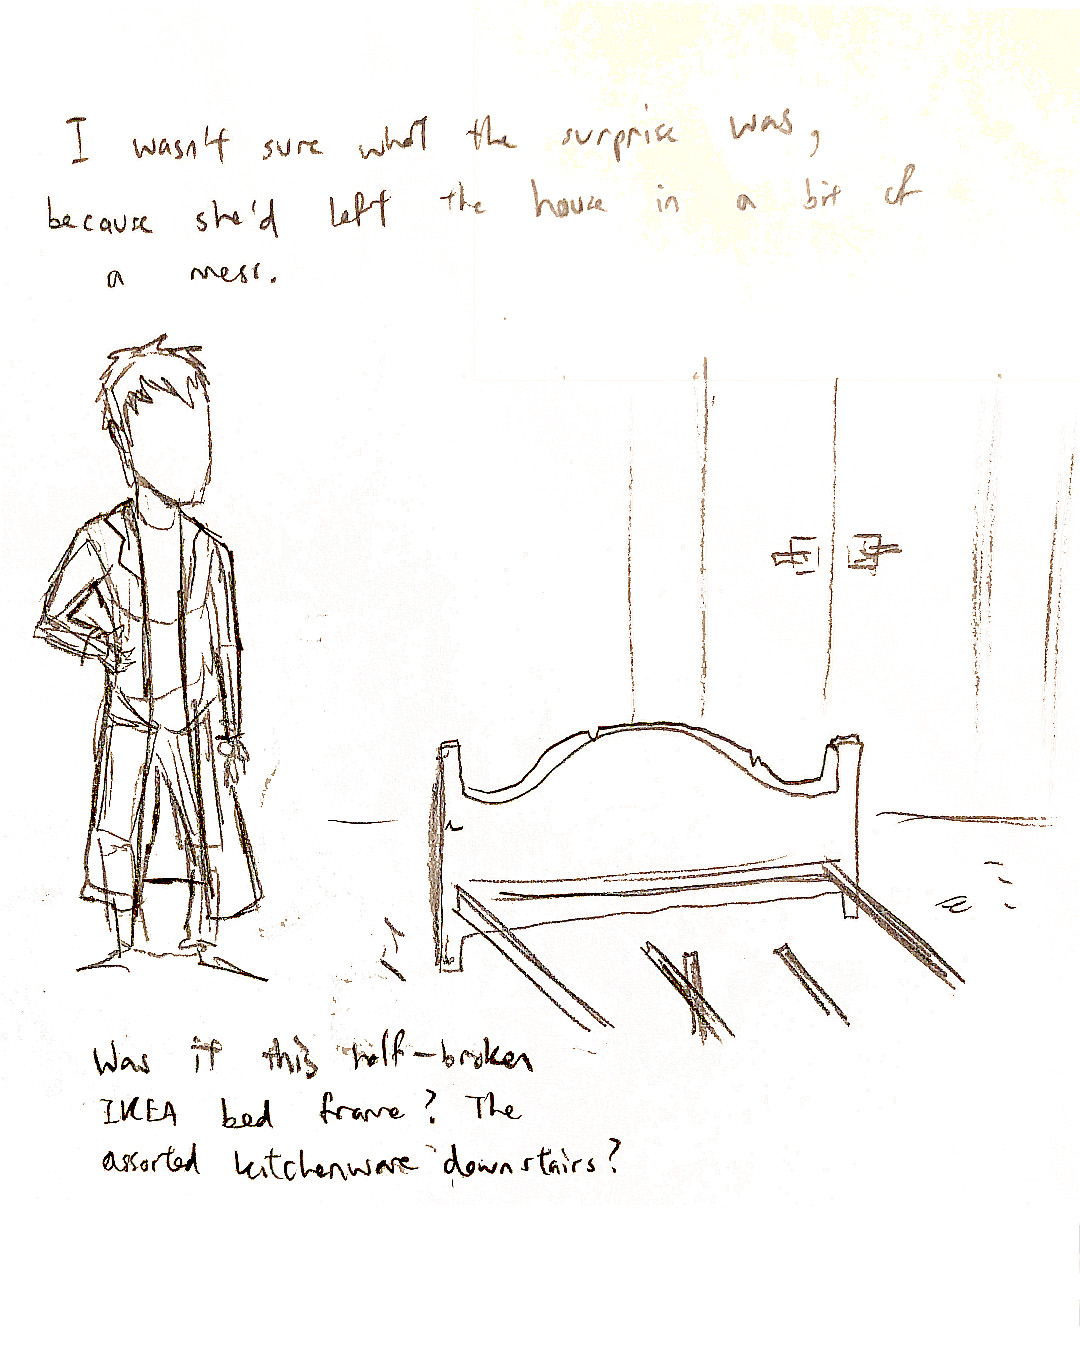 I wasn't sure what the surprise was,
because she'd left the house in a bit of
a mess.
Was it this half-broken
IKEA bed frame? The
assorted kitchenware downstairs?